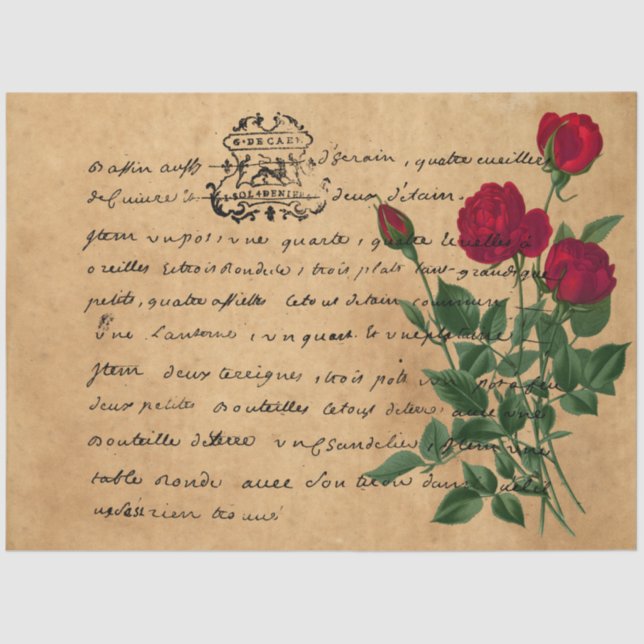 G · DE CAEN
Bassin aussy d'Serain, quatre cueilliers
de Cuivre et 1 SOL 4 DENIERS deux d'étain.
Jtem un pot, une quarte, quatre Ecuelles à
oreilles Et trois Rondes, trois plats tant grands que
petits, quatre assiettes Le tout d'étain commun
une Lanterne, un quart. Et une
Jtem deux tereignes, trois pots un pot a feu
deux petites Bouteilles Le tout de terre, avec une
Bouteille de terre un Chandelier, Jtem une
table Ronde avec Son dans
rien trouvé